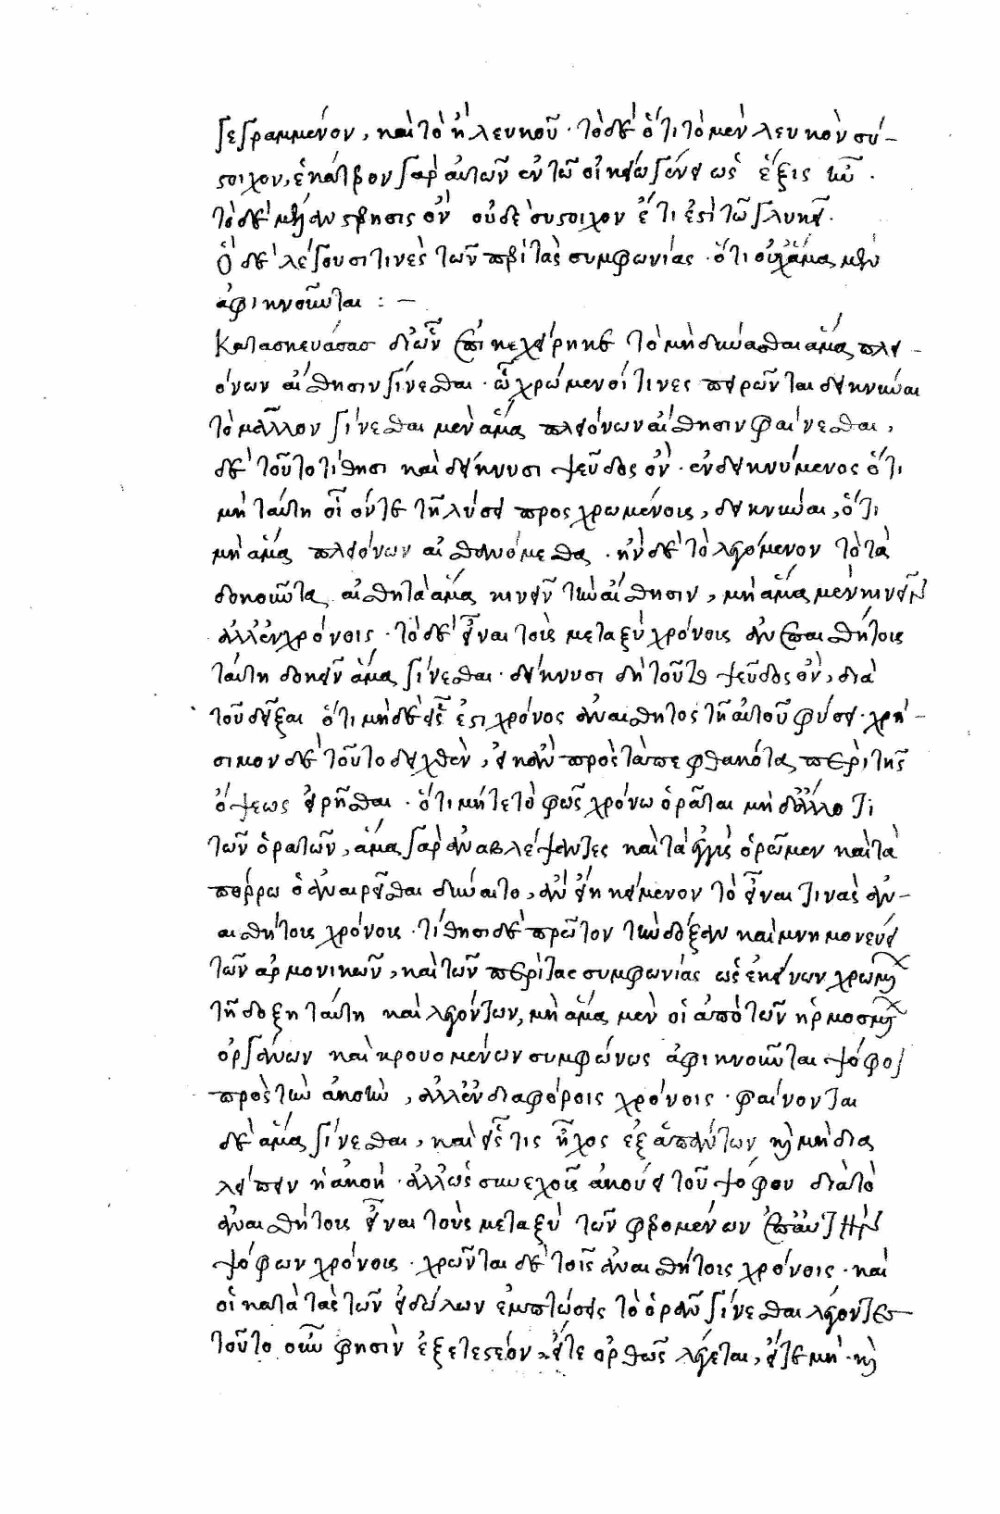 γεγραμμένον, καὶ τὸ ἢ λευκοῦ· τὸ δὲ ὅτι τὸ μὲν λευκὸν σύ-
στοιχον, ἑκάτερον γὰρ αὐτῶν ἐν τῷ οἰκείῳ γένει ὡς ἕξις
τὸ δὲ μέλαν στέρησις ὂν οὐδὲ σύστοιχον ἔτι ἐστὶ τῷ γλυκεῖ.
Ὃ δὲ λέγουσί τινες τῶν περὶ τὰς συμφωνίας· ὅτι οὐχ ἅμα μὲν
ἀφικνοῦνται : —
Κατασκευάσας δι' ὧν ἐπικεχείρηκε τὸ μὴ δύνασθαι ἅμα πλει-
όνων αἴσθησιν γίνεσθαι· ᾧ χρώμενοί τινες πειρῶνται δεικνύναι
τὸ μᾶλλον γίνεσθαι μὲν ἅμα πλειόνων αἴσθησιν φαίνεσθαι,
δὲ τοῦτο τίθησι καὶ δείκνυσι ψεῦδος ὄν· ἐνδεικνύμενος ὅτι
μὴ ταύτῃ οἷόν τε τῇ λύσει προσχρωμένοις, δεικνύναι, ὅτι
μὴ ἅμα πλειόνων αἰσθανόμεθα· ἦν δὲ τὸ λεγόμενον τὸ τὰ
δοκοῦντα αἰσθητὰ ἅμα κινεῖν τὴν αἴσθησιν, μὴ ἅμα μὲν κινεῖν
ἀλλ' ἐν χρόνοις· τὸ δὲ εἶναι τοὺς μεταξὺ χρόνους ἀναισθήτους
ταύτῃ δοκεῖν ἅμα γίνεσθαι· δείκνυσι δὴ τοῦτο ψεῦδος ὄν, διὰ
τοῦ δεῖξαι ὅτι μηδὲ εἷς ἐστι χρόνος ἀναίσθητος τῇ αὐτοῦ φύσει· χρή-
σιμον δὲ τοῦτο δειχθὲν, εἴη ἂν πρὸς τὰ πεφθακότα περὶ τῆς
ὄψεως εἰρῆσθαι· ὅτι μήτε τὸ φῶς χρόνῳ ὁρᾶται μὴ δ' ἄλλο τι
τῶν ὁρατῶν, ἅμα γὰρ ἀναβλέψαντες καὶ τὰ ἐγγὺς ὁρῶμεν καὶ τὰ
πόρρω ὃ ἀναιρεῖσθαι δύναιτο, ἂν εἴη κείμενον τὸ εἶναί τινας ἀν-
αισθήτους χρόνους· τίθησι δὲ πρῶτον τὴν δόξαν καὶ μνημονεύει
τῶν ἁρμονικῶν, καὶ τῶν περὶ τὰς συμφωνίας ὡς ἐκείνων χρωμένων
τῇ δόξῃ ταύτῃ καὶ λεγόντων, μὴ ἅμα μὲν οἱ ἀπὸ τῶν ἡρμοσμένων
ὀργάνων καὶ κρουομένων συμφώνως ἀφικνοῦνται ψόφοι
πρὸς τὴν ἀκοὴν, ἀλλ' ἐν διαφόροις χρόνοις· φαίνονται
δὲ ἅμα γίνεσθαι, καὶ εἷς τις ἦχος ἐξ ἁπάντων καὶ μὴ δια
λείπειν ἡ ἀκοὴ· ἀλλ' ὡς συνεχοῦς ἀκούει τοῦ ψόφου διὰ τὸ
ἀναισθήτους εἶναι τοὺς μεταξὺ τῶν φερομένων ἐπ' αὐτὴν
ψόφων χρόνους· χρῶνται δὲ τοῖς ἀναισθήτοις χρόνοις· καὶ
οἱ κατὰ τὰς τῶν εἰδώλων ἐμπτώσεις τὸ ὁρᾶν γίνεσθαι λέγοντες
τοῦτο οὖν φησὶν ἐξεταστέον, εἴτε ὀρθῶς λέγεται, εἴτε μὴ· καὶ